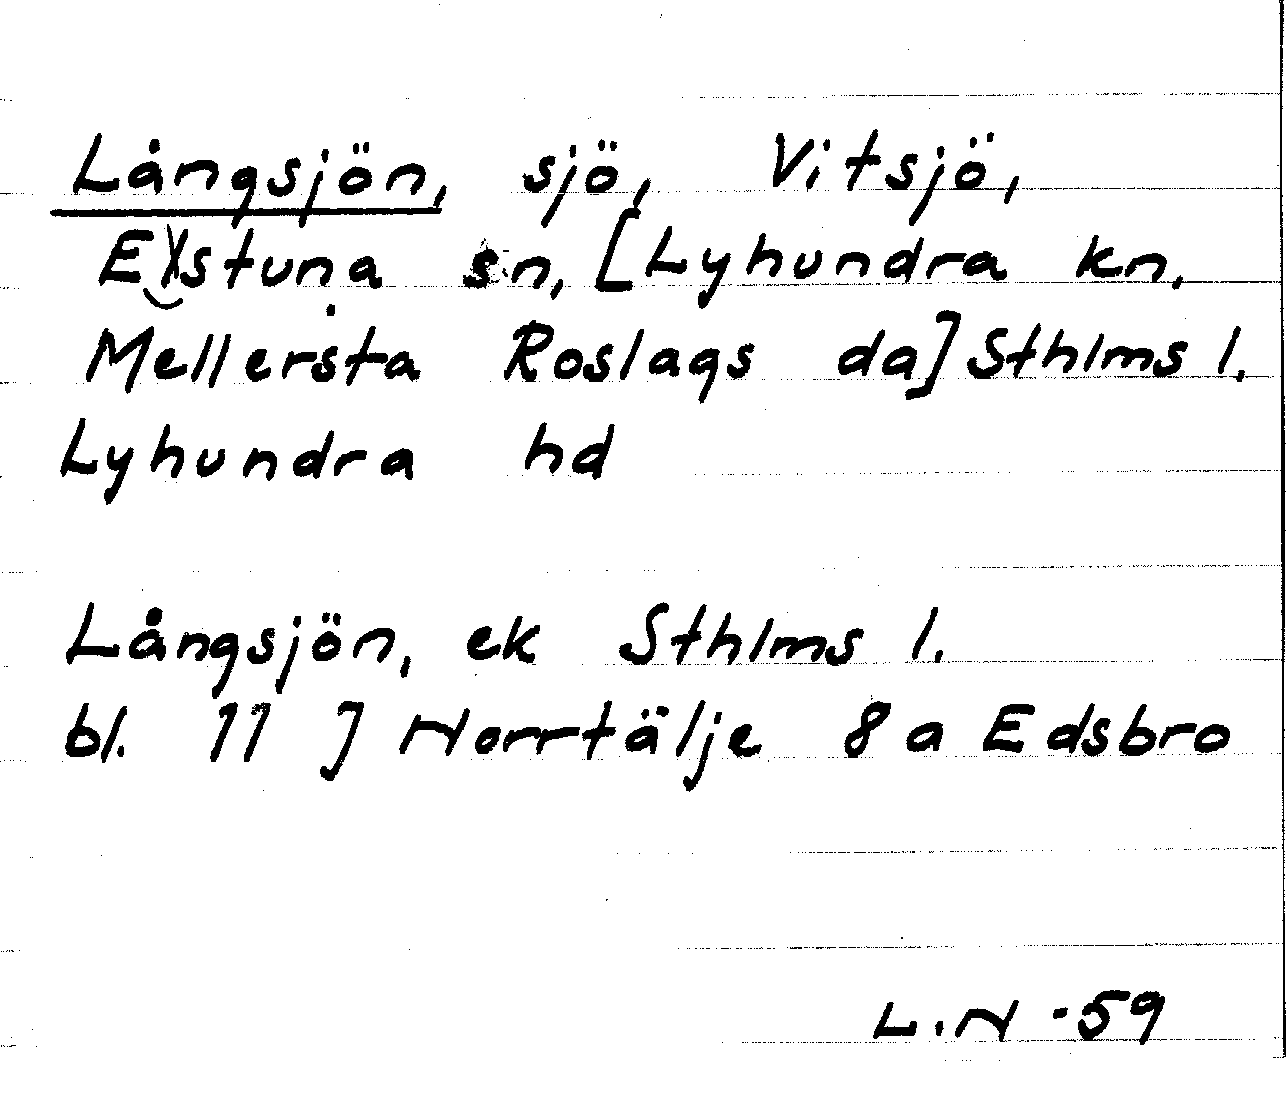 Långsjön, sjö, Vitsjö,
Estuna sn, [Lyhundra kn,
Mellersta Roslags da] Sthlms l.
Lyhundra hd
Långsjön, ek Sthlms l.
bl. 11 J Norrtälje 8 a Edsbro
L.N -59